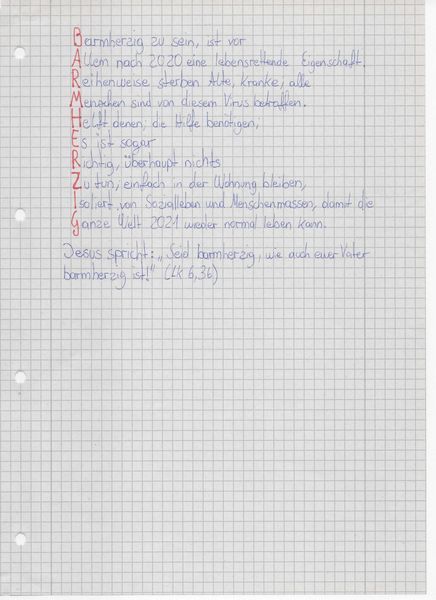 Barmherzig zu sein, ist vor
Allem nach 2020 eine lebensrettende Eigenschaft.
Reihenweise sterben Alte, Kranke, alle
Menschen sind von diesem Virus betroffen.
Helft denen, die Hilfe benötigen,
Es ist sogar
Richtig, überhaupt nichts
Zu tun, einfach in der Wohnung bleiben,
Isoliert von Sozialleben und Menschenmassen, damit die
Ganze Welt 2021 wieder normal leben kann.
Jesus spricht: „Seid barmherzig, wie auch euer Vater
barmherzig ist!" (Lk 6,36)